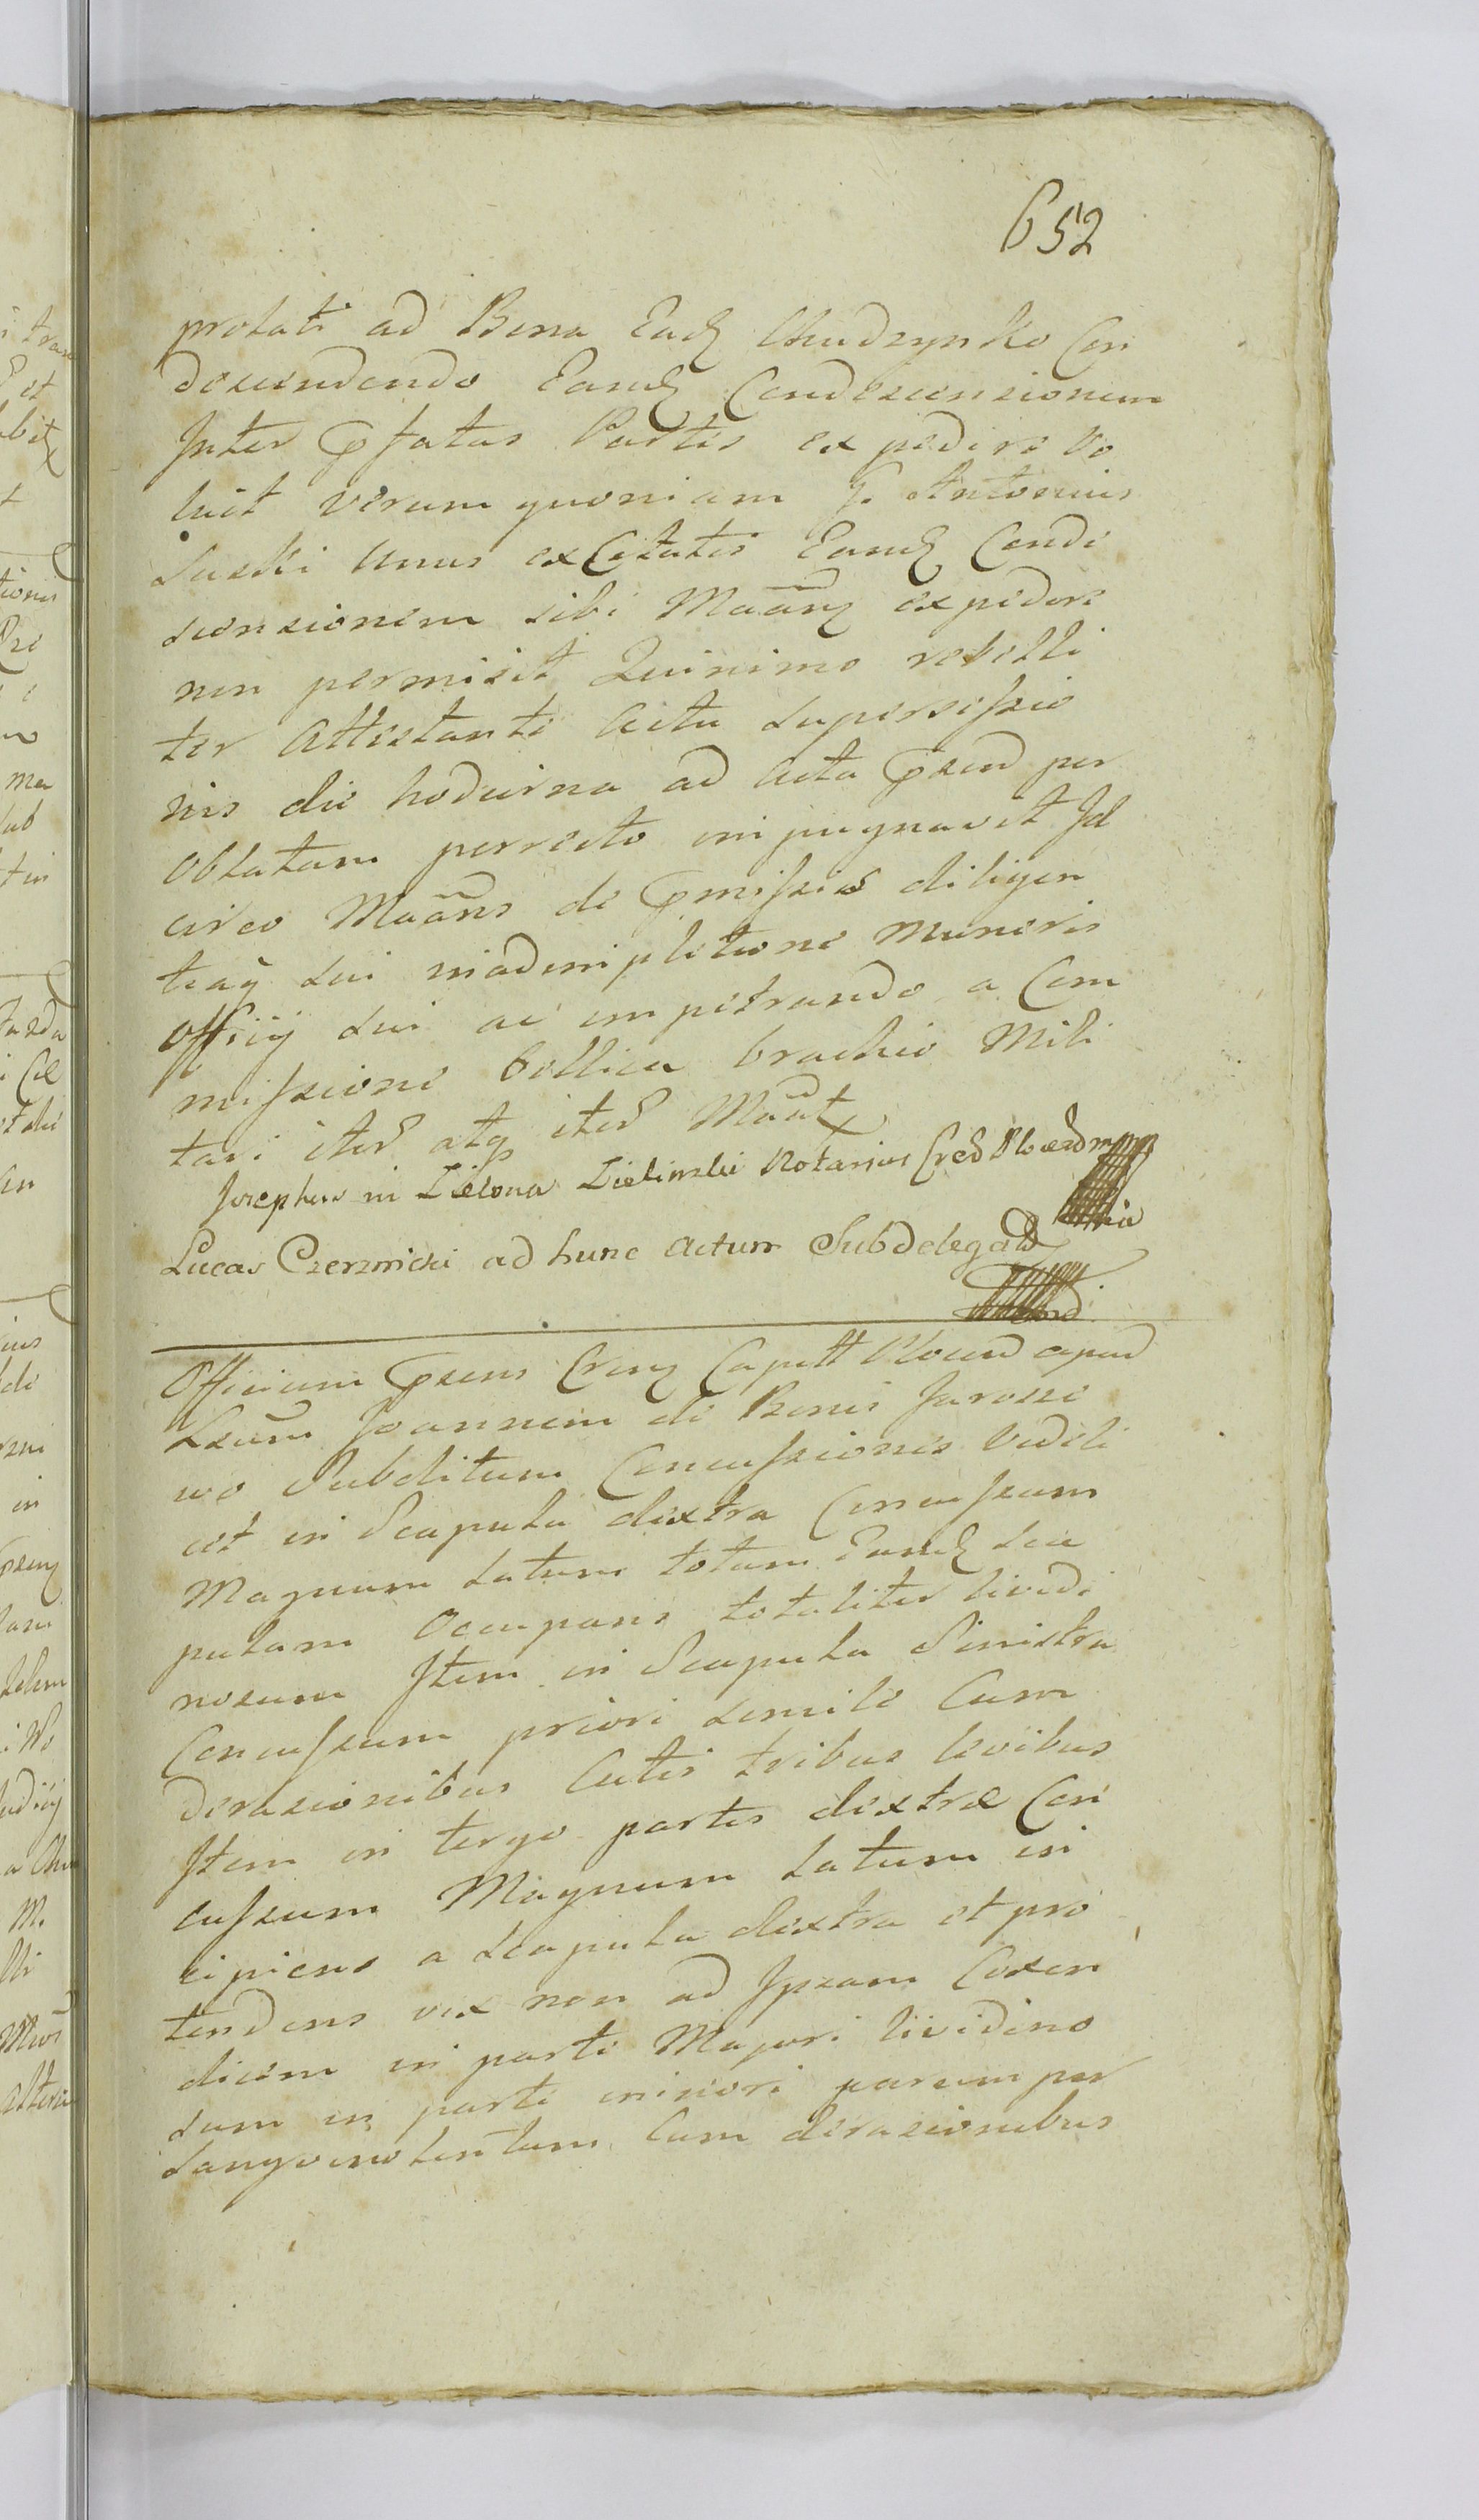 652
prolati ad Bona Ead Chudzynko Con
descendendo Eand Condescensionem
Inter pfatas Partes expedire vo
luit verum quoniam G. Antonius
Suski Unus ex Citatis Eand Conde
scensionem sibi Maanq expedire
non permisit Quinimo rebelli
ter Attestante Actu supersessio
nis die hodierna ad Acta psend per
Oblatam perrecto impugnavit Id
circo Maans de pmissis diligen
tiaq sui in ademplitione Muneris
Officij sui ac impetrando a Com
missione bellica brachio Mili
tari iter atq iter Maat
Josephus in Zielona Zielinski Notarius Cred Plocensd
Lucas Czerznicki ad hunc Actum Subdelegatd
Officium psens Crenq Capitt Plocensd apud
Lsum Joannem de Bonis Jarosze
wo Subditum Concussiones videli
cet in Scapula dextra Concussum
Magnum Latum totam Eand sca
pulam Occupans totaliter livedi
nosum Item in Scapula Sinistra
Concussum priori simile Cum
derasionibus Cutis tribus levibus
Item in tergo partis dextrae Con
cussum Magnum Latum in
cipiens a scapula dextra et pro
tendens vix non ad Ipsam Coxen
dicem in parte Majori livedino
sum in parte minori parumper
sangvinolentum Cum derasionibus